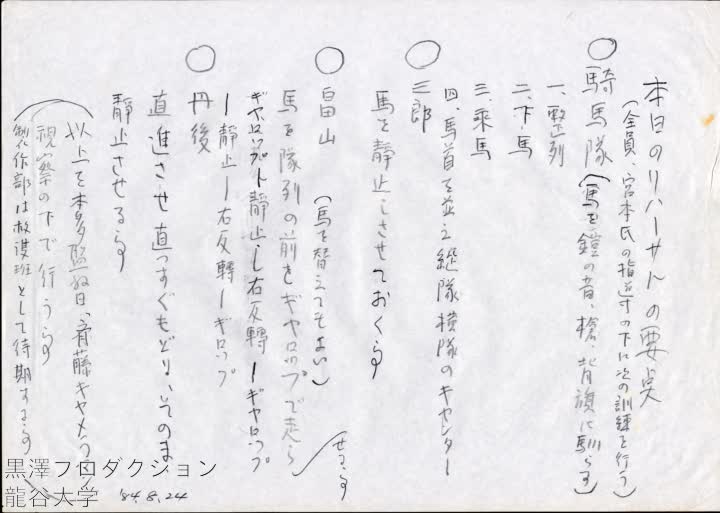 本日のリハーサルの要点
(全員、宮本氏の指導の下に次の訓練を行う)
○騎馬隊(馬を鎧の音、槍、背旗に馴らす)
一、整列
二、下馬
三、乗馬
四、馬首を並え縦隊横隊のキャンター
○三郎
馬を静止させておく事
○畠山(馬を替えてもよい)
馬を隊列の前をギャロップで走ら
せる事
ギャロップ—静止—右反轉—ギャロップ
○丹後
—静止—右反轉—ギャロップ
直進させ直っすぐもどり、そのまま
静止させる事
(以上を本多監督、斉藤キャメラマン
視察の下で行う事
製作部は救護班として待期する事)
'84.8.24
黒澤プロダクション
龍谷大学